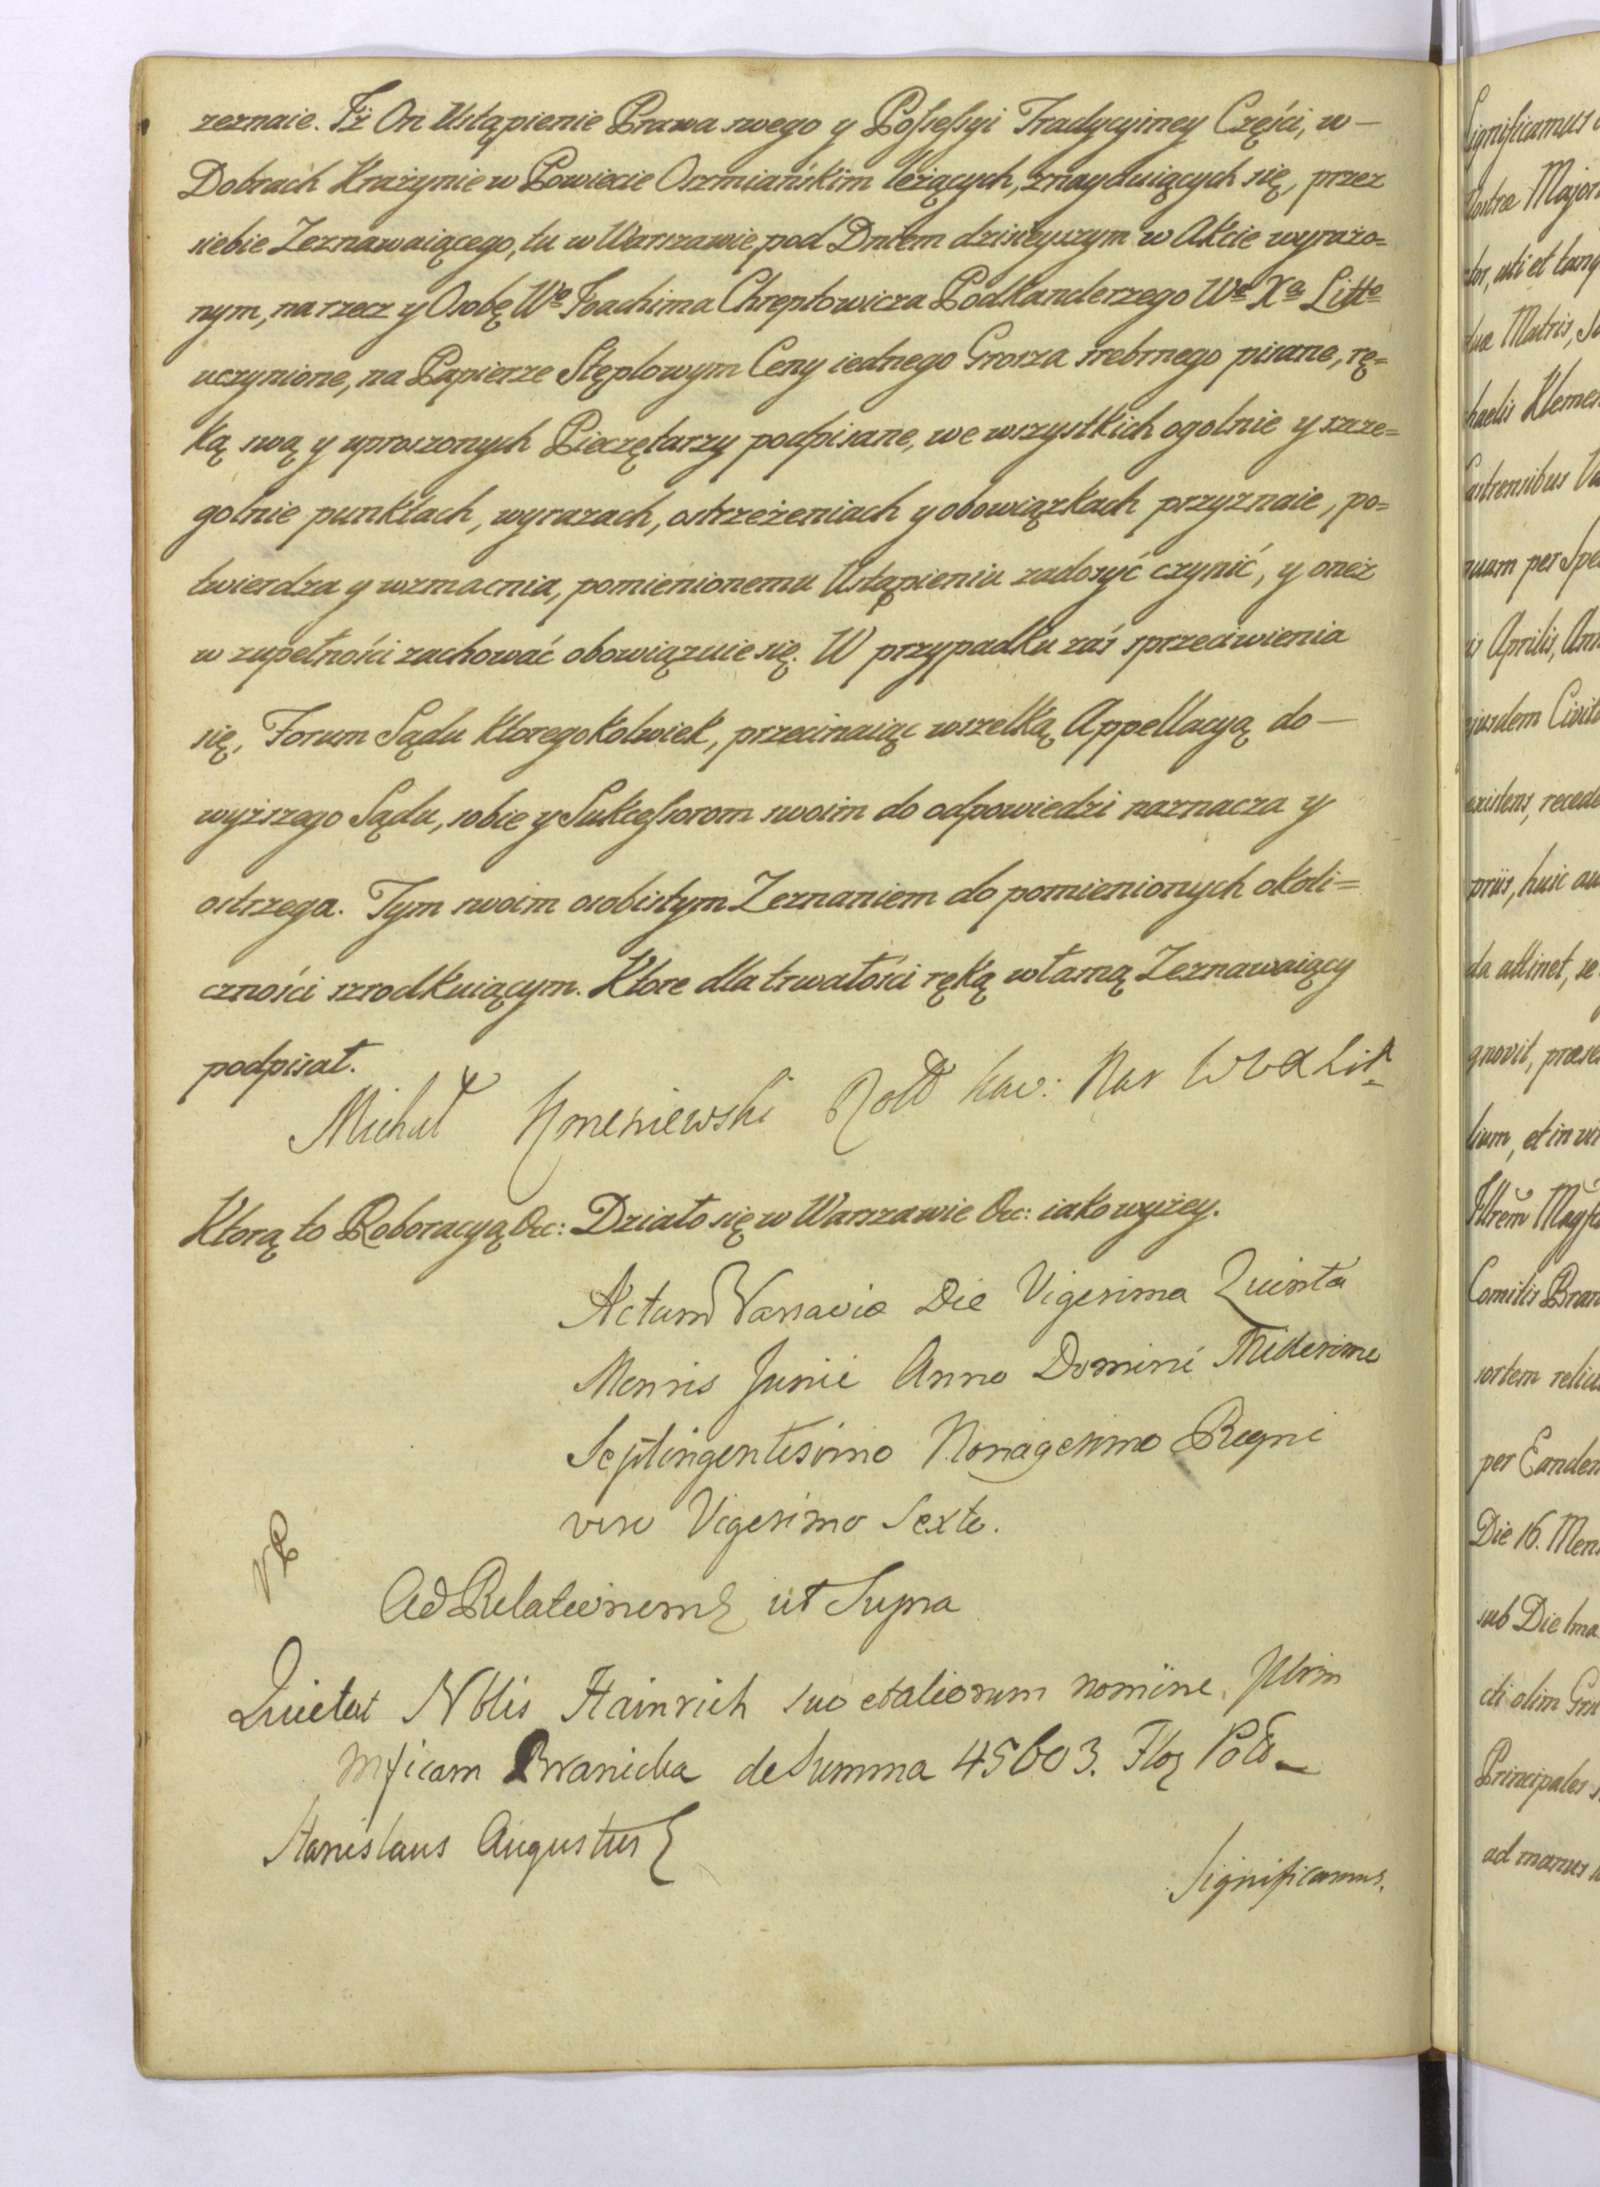 zeznaie. Iż On Ustąpienie Prawa swego y Possessyi Tradycyiney Części, w —
Dobrach Krażynie w Powiecie Oszmiańskim leżących, znayduiących się, przez
siebie Zeznawaiącego, tu w Warszawie, pod Dniem dzisieyszym w Akcie wyrażo=
nym, na rzecz y Osobę We Joachima Chreptowicza Podkanclerzego We Xa Litte
uczynione, na Papierze Stęplowym Ceny iednego Grosza srebrnego pisane, rę=
ką swą y uproszonych Pieczętarzy podpisane, we wszystkich ogolnie y szcze=
golnie punktach, wyrazach, ostrzeżeniach y obowiązkach przyznaie, po=
twierdza y wzmacnia, pomienionemu Ustąpieniu zadosyć czynić, y oneż
w zupełności zachować obowiązuie się. W przypadku zaś sprzeciwienia
się, Forum Sądu ktoregokolwiek, przecinaiąc wszelką Appellacyą do —
wyższego Sądu, sobie y Sukcessorom swoim do odpowiedzi naznacza y
ostrzega. Tym swoim osobistym Zeznaniem do pomienionych okoli=
czności szrodkuiącym. Ktore dla trwałości ręką własną Zeznawaiący
podpisał.
Michał Kaw: Nar
Ktorą to Roboracyą &c: Działo się w Warszawie &c: iako wyżey.
Actum Varsaviæ Die Vigesima Quinta
Mensis Junii Anno Domini Millesimo
Septingentesimo Nonagesimo Regni
vero Vigesimo Sexto.
Ad Relationem ut Supra
Quietat Nblis Hainrich suo et aliorum nomine. Jllrem
Mficam Branicka de Summa 45603. Flor Pol
Stanislaus Augustus
Significamus.
Significamus
nostræ Major
uti et tanq
Matris,
Klemen
Castrensibus
per Spe
Aprilis, Ann
Civit
existens, recede
huic au
attinet, se
gnovit, præse
et in
Illrem Magf
Comitis Bran
sortem relic
per Eandem
Die 16. Mens
sub Die
olim
Principales
ad manus